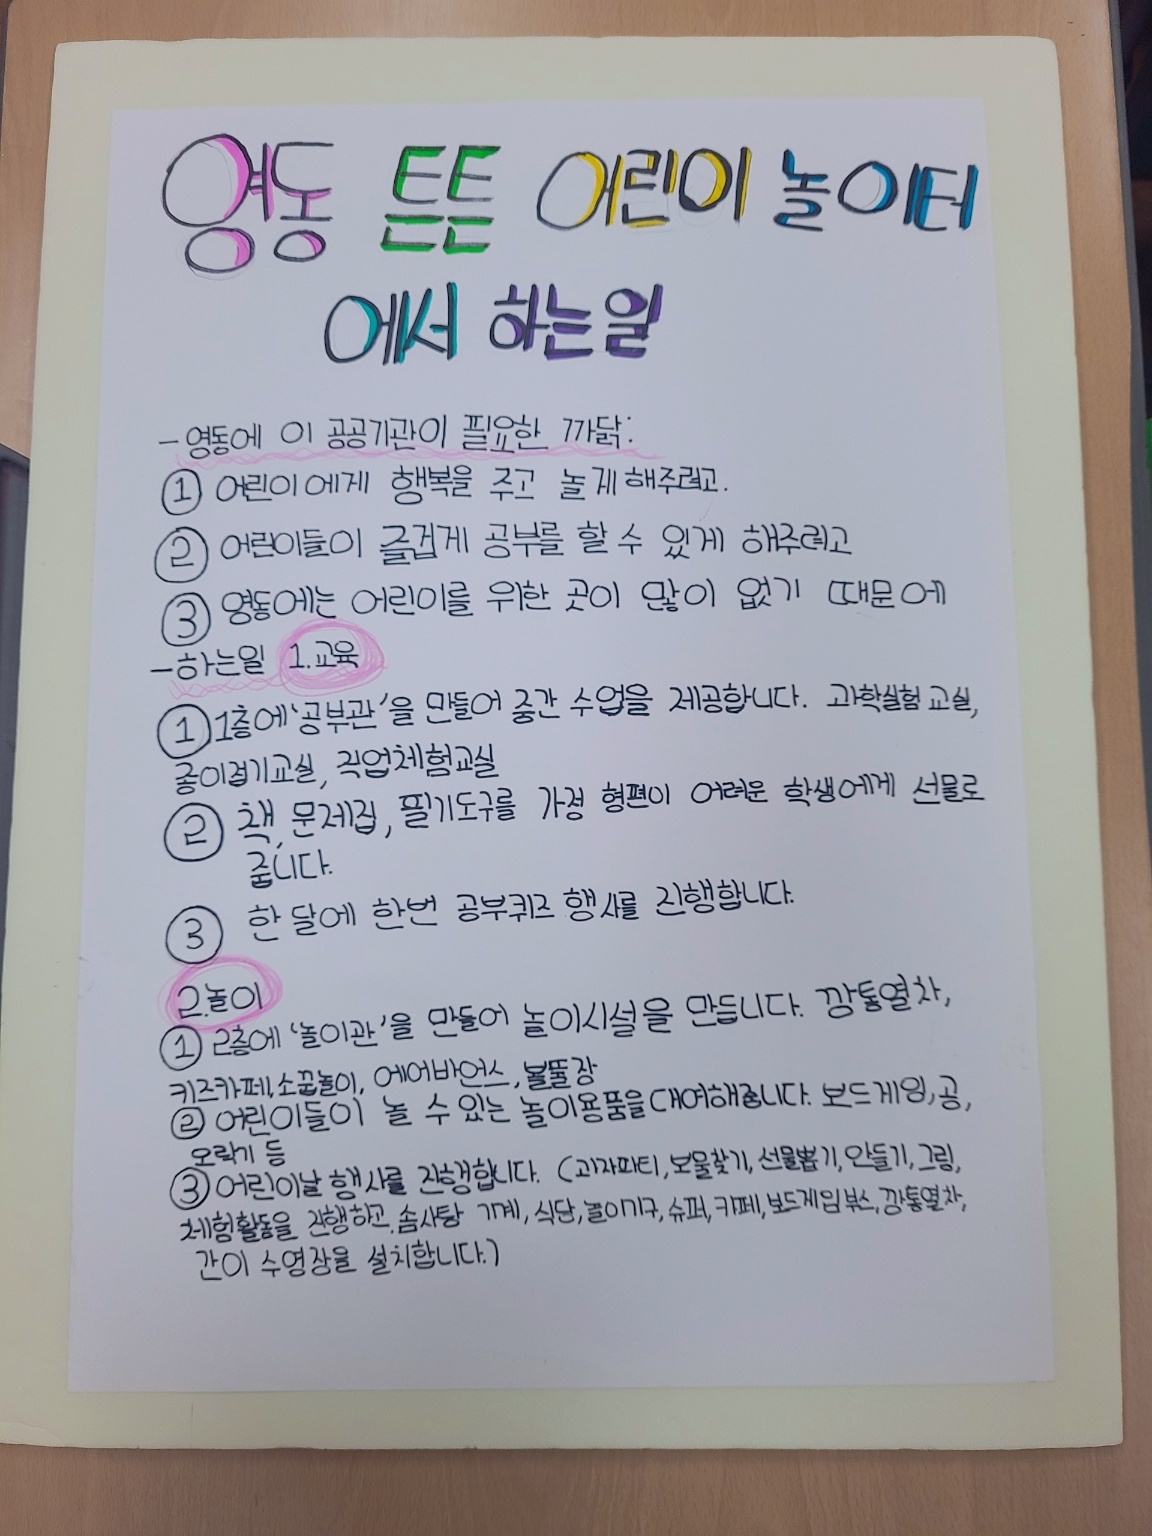 영동 튼튼 어린이 놀이터
에서 하는일
- 영동에 이 공공기관이 필요한 까닭:
① 어린이에게 행복을 주고 놀게 해주려고.
② 어린이들이 즐겁게 공부를 할 수 있게 해주려고
③ 영동에는 어린이를 위한 곳이 많이 없기 때문에
- 하는일 1.교육
① 1층에 '공부관'을 만들어 중간 수업을 제공합니다. 과학실험 교실,
종이접기교실, 직업체험교실
② 책, 문제집, 필기도구를 가정 형편이 어려운 학생에게 선물로
줍니다.
③ 한 달에 한번 공부퀴즈 행사를 진행합니다.
2.놀이
① 2층에 '놀이관'을 만들어 놀이시설을 만듭니다. 깡통열차,
키즈카페, 소꿉놀이, 에어바언스, 볼풀장
② 어린이들이 놀 수 있는 놀이용품을 대여해줍니다. 보드게임, 공,
오락기 등
③ 어린이날 행사를 진행합니다. (과자파티, 보물찾기, 선물뽑기, 만들기, 그림,
체험활동을 진행하고, 솜사탕 기계, 식당, 놀이기구, 슈퍼, 카페, 보드게임 부스, 깡통열차,
간이 수영장을 설치합니다.)